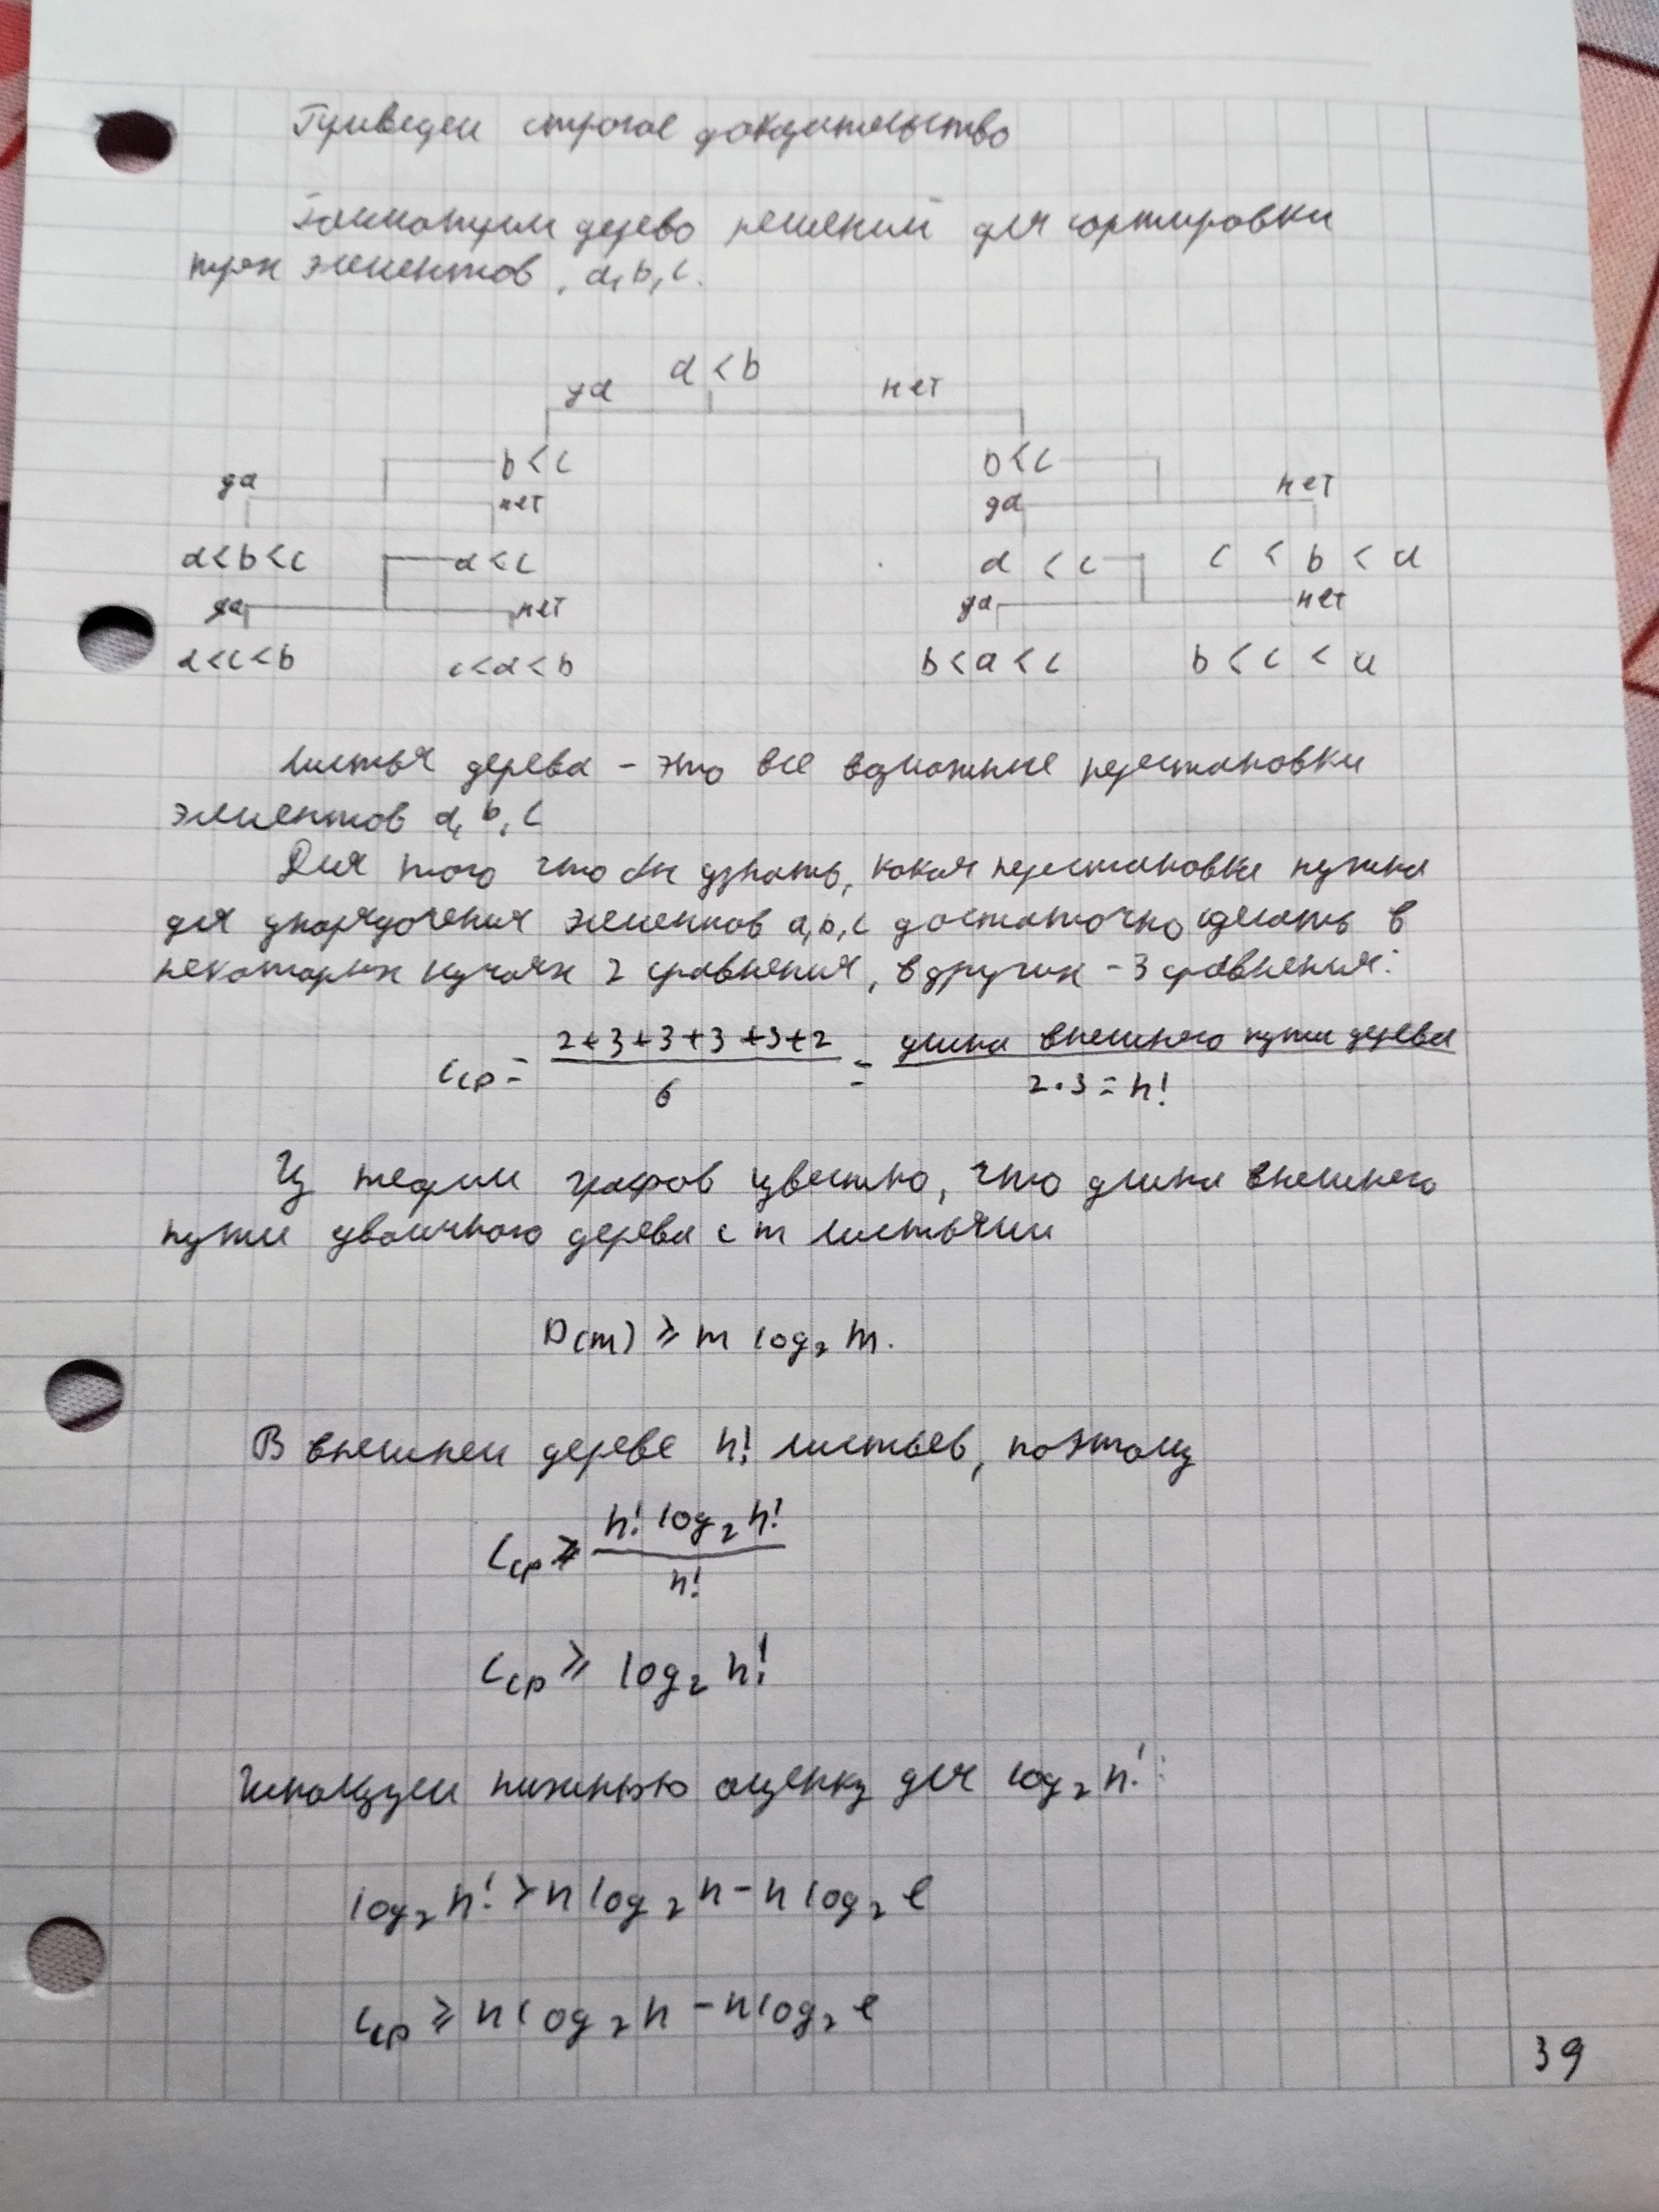 Приведем строгое доказательство
Рассмотрим дерево решений для сортировки
трех элементов, a, b, c.
a < b
да нет
b < c b < c
да нет да нет
a < b < c a < c a < c c < b < a
да нет да нет
a < c < b c < a < b b < a < c b < c < a
Листья дерева - это все возможные перестановки
элементов a, b, c
Для того чтобы узнать, какая перестановка нужна
для упорядочения элементов a, b, c достаточно сделать в
некоторых случаях 2 сравнения, в других - 3 сравнения:
Cср = (2+3+3+3+3+2)/6 = длина внешнего пути дерева/(2·3 = n!)
Из теории графов известно, что длина внешнего
пути двоичного дерева с m листьями
D(m) ≥ m log₂ m.
В внешнем дереве n! листьев, поэтому
Cср ≥ (n! log₂ n!)/n!
Cср ≥ log₂ n!
Используем нижнюю оценку для log₂ n!:
log₂ n! > n log₂ n - n log₂ e
Cср ≥ n log₂ n - n log₂ e
39